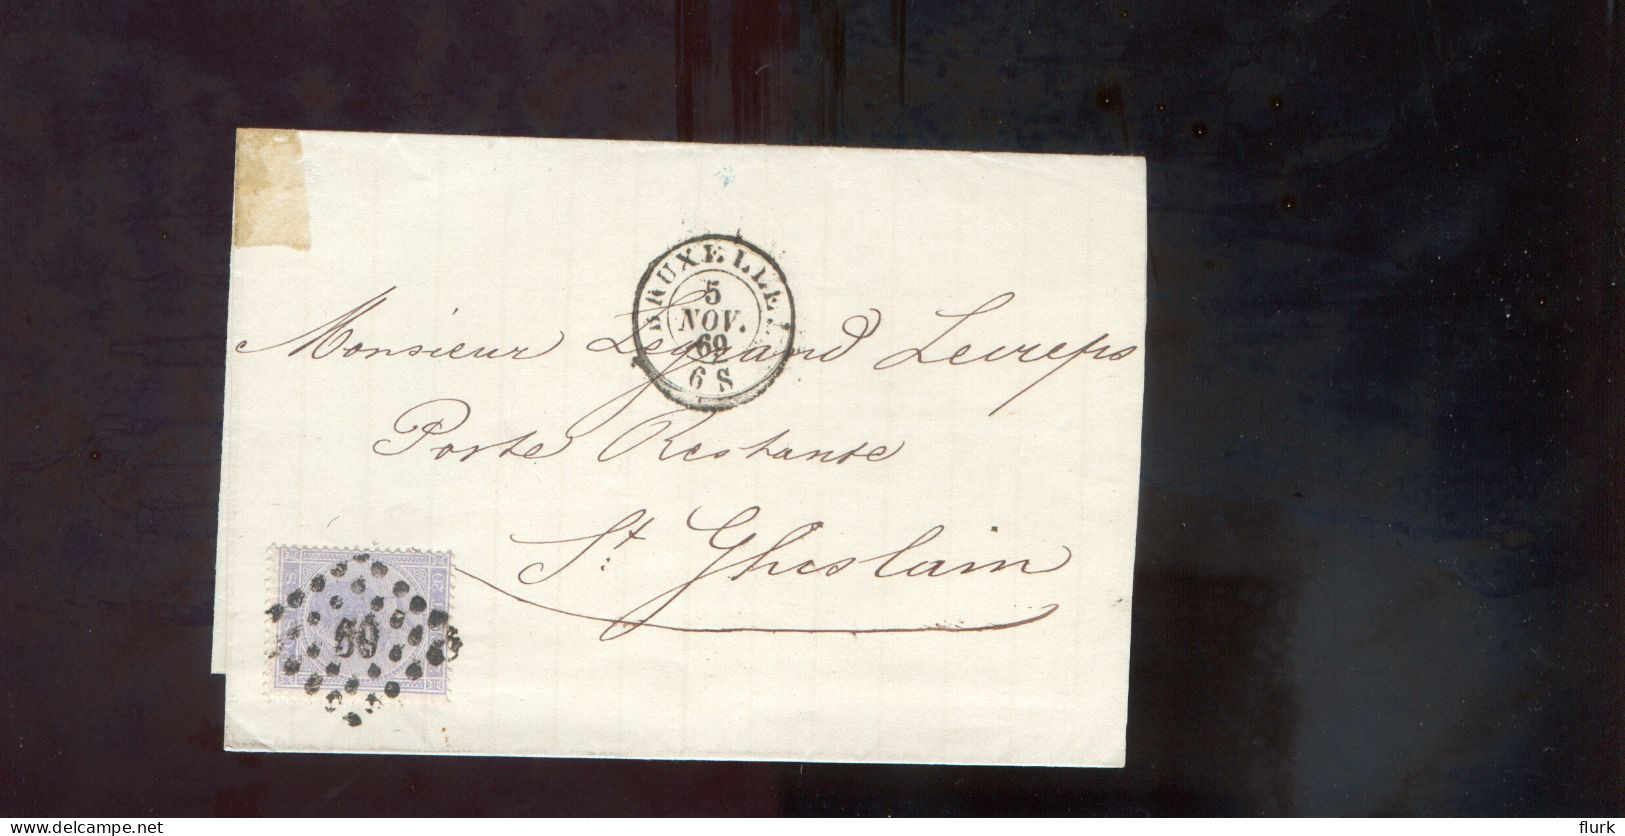 BRUXELLES
5
NOV.
69
6 S
Monsieur Legrand Lecreps
Poste Restante
St Ghislain
60
delcampe.net
flurk